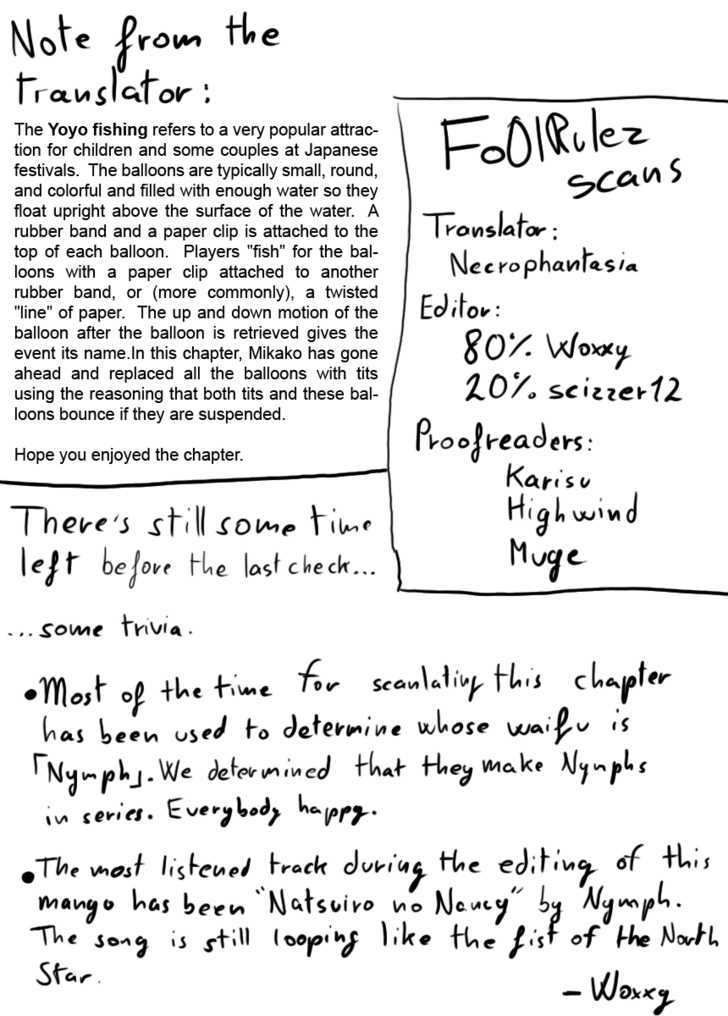 Note from the
translator:
The Yoyo fishing refers to a very popular attrac-
tion for children and some couples at Japanese
festivals. The balloons are typically small, round,
and colorful and filled with enough water so they
float upright above the surface of the water. A
rubber band and a paper clip is attached to the
top of each balloon. Players "fish" for the bal-
loons with a paper clip attached to another
rubber band, or (more commonly), a twisted
"line" of paper. The up and down motion of the
balloon after the balloon is retrieved gives the
event its name.In this chapter, Mikako has gone
ahead and replaced all the balloons with tits
using the reasoning that both tits and these bal-
loons bounce if they are suspended.
Hope you enjoyed the chapter.
FoOlRulez
scans
Translator:
Necrophantasia
Editor:
80% Woxxy
20% scizzer12
Proofreaders:
Karisu
Highwind
Muge
There's still some time
left before the last check...
...some trivia.
•Most of the time for scanlating this chapter
has been used to determine whose waifu is
「Nymph」. We determined that they make Nymphs
in series. Everybody happy.
•The most listened track during the editing of this
mango has been "Natsuiro no Nancy" by Nymph.
The song is still looping like the fist of the North
Star.
- Woxxy